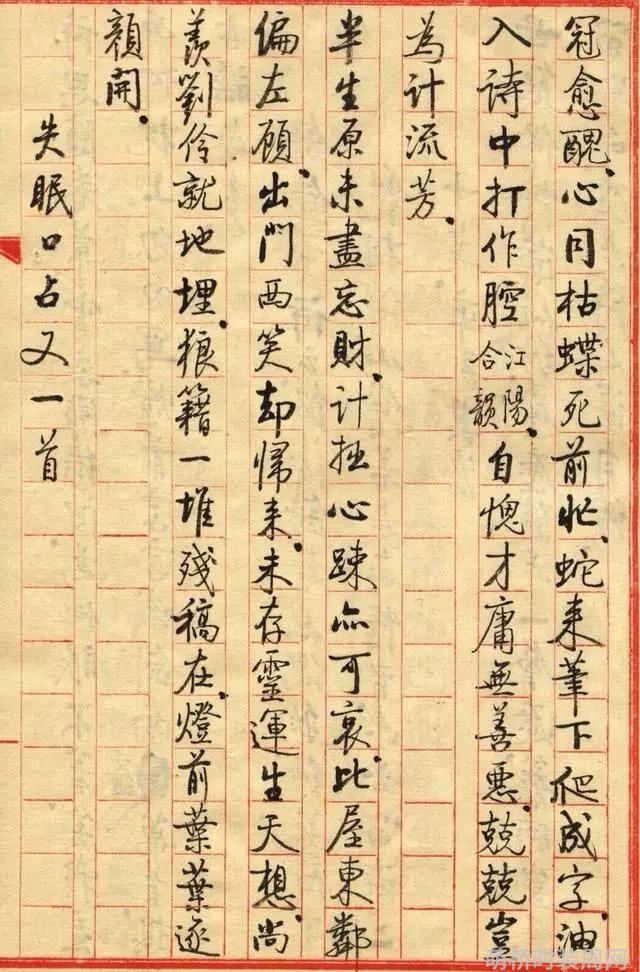 冠愈醜、心同枯蝶死前忙、蛇来筆下爬成字、油
入詩中打作腔合江陽韻、自愧才庸無善惡、兢兢豈
為計流芳、
半生原未盡忘財、計拙心疎亦可哀、比屋東鄰
偏左顧、出門西笑却歸来、未存靈運生天想、尚
羨劉伶就地埋、狼籍一堆殘稿在、燈前葉葉逐
顏開、
失眠口占又一首